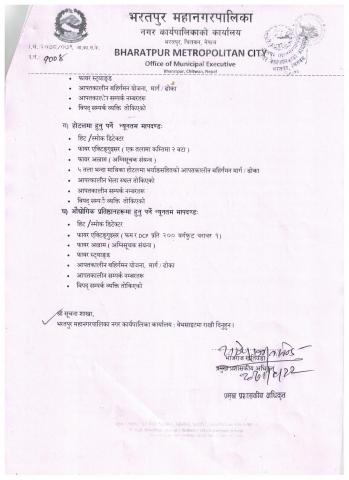 भरतपुर महानगरपालिका
नगर कार्यपालिकाको कार्यालय
भरतपुर, चितवन, नेपाल
BHARATPUR METROPOLITAN CITY
Office of Municipal Executive
Bharatpur, Chitwan, Nepal
प.सं. २०७८/०७९
च.नं. 9008
• फायर स्ट्याण्ड
• आपतकालीन बहिर्गमन योजना, मार्ग/ ढोका
• आपतकालीन सम्पर्क नम्बरहरु
• विपद् सम्पर्क व्यक्ति तोकिएको
ग) होटलमा हुनु पर्ने न्यूनतम मापदण्डः
• हिट/स्मोक डिटेक्टर
• फायर एक्टिङ्गुइसर ( एक तलामा कम्तिमा २ वटा )
• फायर अलाम ( अग्निसूचक संयन्त्र )
• ५ तला भन्दा माथिका होटलमा भर्याङसहितको आपतकालीन बहिर्गमन मार्ग/ ढोका
• आपतकालीन भेला स्थल तोकिएको
• आपतकालीन सम्पर्क नम्बरहरु
• विपद् सम्पर्क व्यक्ति तोकिएको
घ) औद्योगिक प्रतिष्ठानहरूमा हुनु पर्ने न्यूनतम मापदण्डः
• हिट /स्मोक डिटेक्टर
• फायर एक्टिङ्गुइसर ( DCP प्रति २०० वर्गफुट बराबर १)
• फायर अलाम ( अग्निसूचक संयन्त्र )
• फायर स्ट्याण्ड
• आपतकालीन बहिर्गमन योजना, मार्ग/ ढोका
• आपतकालीन सम्पर्क नम्बरहरु
• विपद् सम्पर्क व्यक्ति तोकिएको
श्री सूचना शाखा,
भरतपुर महानगरपालिका नगर कार्यपालिका कार्यालय : वेभसाइटमा राखी दिनुहुन ।
प्रमुख प्रशासकीय अधिकृत
प्रमुख प्रशासकीय अधिकृत